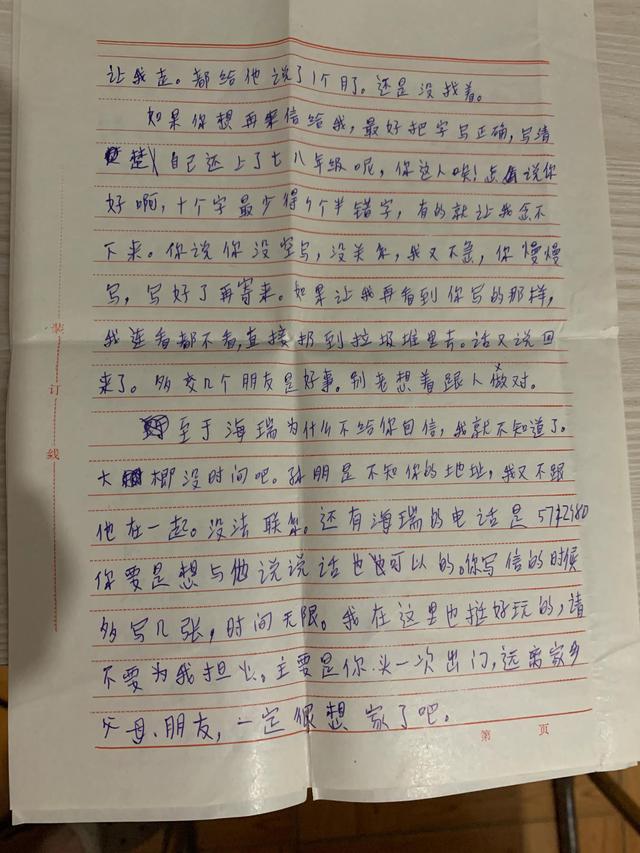 让我走。都给他说了1个月了。还是没找着。
如果你想再来信给我,最好把字写正确,写清
楚)自己还上了七八年级呢,你这人唉!还说你
好啊,十个字最少得有个半错字,有的就让我念不
下来。你说你没空写,没关系,我又不急,你慢慢
写,写好了再寄来。如果让我再看到你写的那样,
我连看都不看,直接扔到垃圾堆里去。话又说回
来了。多交几个朋友是好事。别老想着跟人做对。
至于海瑞为什么不给你回信,我就不知道了。
大概没时间吧。孙朋是不知你的地址,我又不跟
他在一起。没法联系。还有海瑞的电话是
你要是想与他说说话也可以的。你写信的时候
多写几张,时间无限。我在这里也挺好玩的,请
不要为我担心。主要是你头一次出门,远离家乡
父母、朋友,一定很想家了吧。
装
订
线
第 页